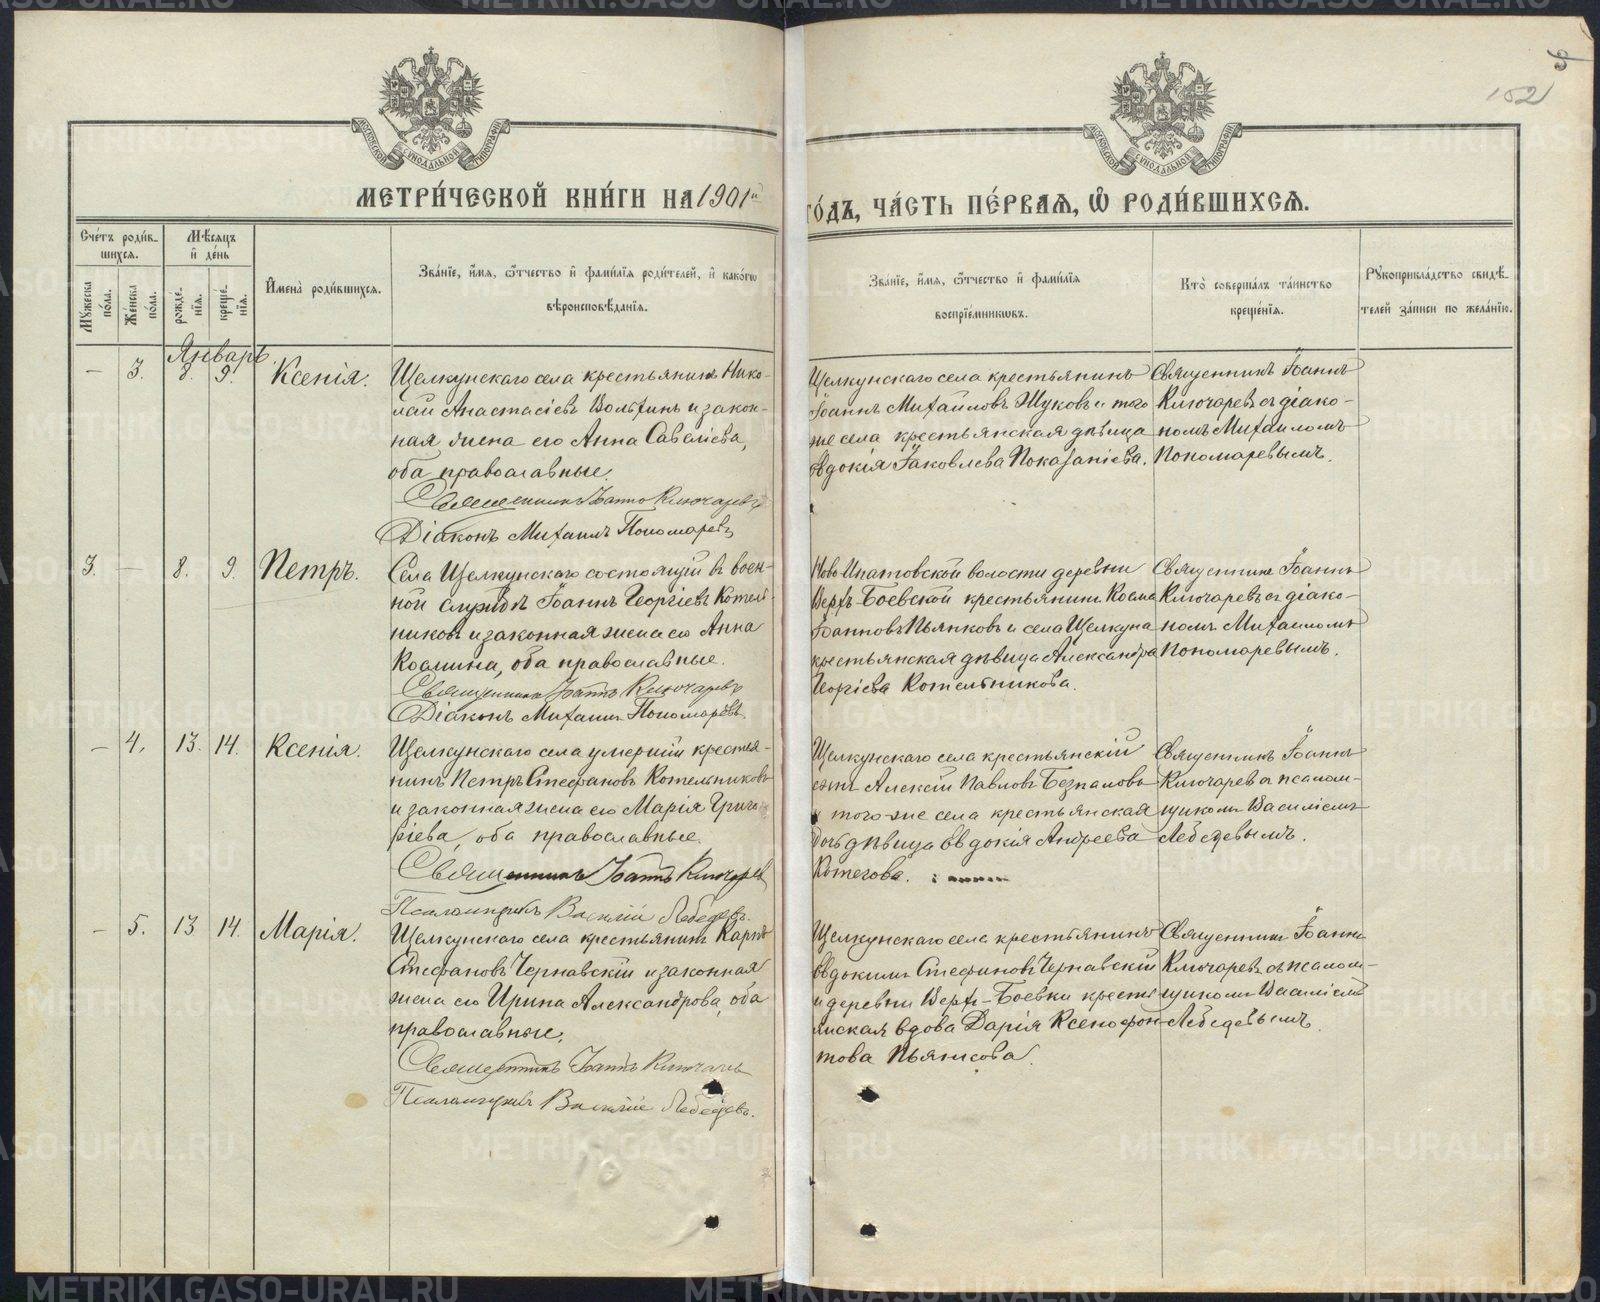 5
152
МОСКОВСКОЙ СѴНОДАЛЬНОЙ ТИПОГРАФІИ
МОСКОВСКОЙ СѴНОДАЛЬНОЙ ТИПОГРАФІИ
МЕТРИ́ЧЕСКОЙ КНИ́ГИ НА 1901й
ГО́ДЪ, ЧА́СТЬ ПЕ́РВАѦ, Ѽ РОДИ́ВШИХСѦ.
Сче́тъ роди́в-
шихсѧ.
Мѣ́сѧцъ
и҆ де́нь
Мꙋ́жеска
по́ла.
Же́нска
по́ла.
рожде́-
нїѧ.
креще́-
нїѧ.
И҆мена̀ роди́вшихсѧ.
Зва́нїе, и҆́мѧ, ѻ҆́тчество и҆ фами́лїѧ роди́телей, и҆ како́гѡ
вѣроисповѣ́данїѧ.
Зва́нїе, и҆́мѧ, ѻ҆́тчество и҆ фами́лїѧ
воспрїе́мникѡвъ.
Кто̀ соверша́лъ та́инство
креще́нїѧ.
Рꙋкоприкла́дство свидѣ́-
телей за́писи по жела́нїю.
Январь
— 3. 8. 9. Ксенія.
Щелкунскаго села крестьянинъ Нико-
лай Анастасіевъ Вольхинъ и закон-
ная жена его Анна Савеліева,
оба православные.
Священникъ Іоаннъ Ключаревъ
Діаконъ Михаилъ Пономаревъ
Щелкунскаго села крестьянинъ
Іоаннъ Михайловъ Жуковъ и того
же села крестьянская дѣвица
Евдокія Іаковлева Показаніева.
Священникъ Іоаннъ
Ключаревъ съ діако-
номъ Михаиломъ
Пономаревымъ.
3. — 8. 9. Петръ.
Села Щелкунскаго состоящій въ воен-
ной службѣ Іоаннъ Георгіевъ Котель-
никовъ и законная жена его Анна
Космина, оба православные.
Священникъ Іоаннъ Ключаревъ
Діаконъ Михаилъ Пономаревъ
Ново-Ипатовской волости деревни
Верхъ-Боевской крестьянинъ Косма
Іоанновъ Пьянковъ и села Щелкуна
крестьянская дѣвица Александра
Георгіева Котельникова.
Священникъ Іоаннъ
Ключаревъ съ діако-
номъ Михаиломъ
Пономаревымъ.
— 4. 13. 14. Ксенія.
Щелкунскаго села умершій крестья-
нинъ Петръ Стефановъ Котельниковъ
и законная жена его Марія Григо-
ріева, оба православные.
Священникъ Іоаннъ Ключарев
Псаломщикъ Василій Лебедевъ.
Щелкунскаго села крестьянскій
сынъ Алексій Павловъ Безпаловъ
и того-же села крестьянская
дочь дѣвица Евдокія Андреева
Котегова.
Священникъ Іоаннъ
Ключаревъ съ псалом-
щикомъ Василіемъ
Лебедевымъ.
— 5. 13 14. Марія.
Щелкунскаго села крестьянинъ Карпъ
Стефановъ Чернавскій и законная
жена его Ирина Александрова, оба
православные.
Священникъ Іоаннъ Ключаревъ
Псаломщикъ Василій Лебедевъ.
Щелкунскаго села крестьянинъ
Евдокимъ Стефановъ Чернавскій
и деревни Верхъ-Боевки кресть-
янская вдова Дарія Ксенофон-
това Пьянкова.
Священникъ Іоаннъ
Ключаревъ съ псалом-
щикомъ Василіемъ
Лебедевымъ.
METRIKI.GASO-URAL.RU